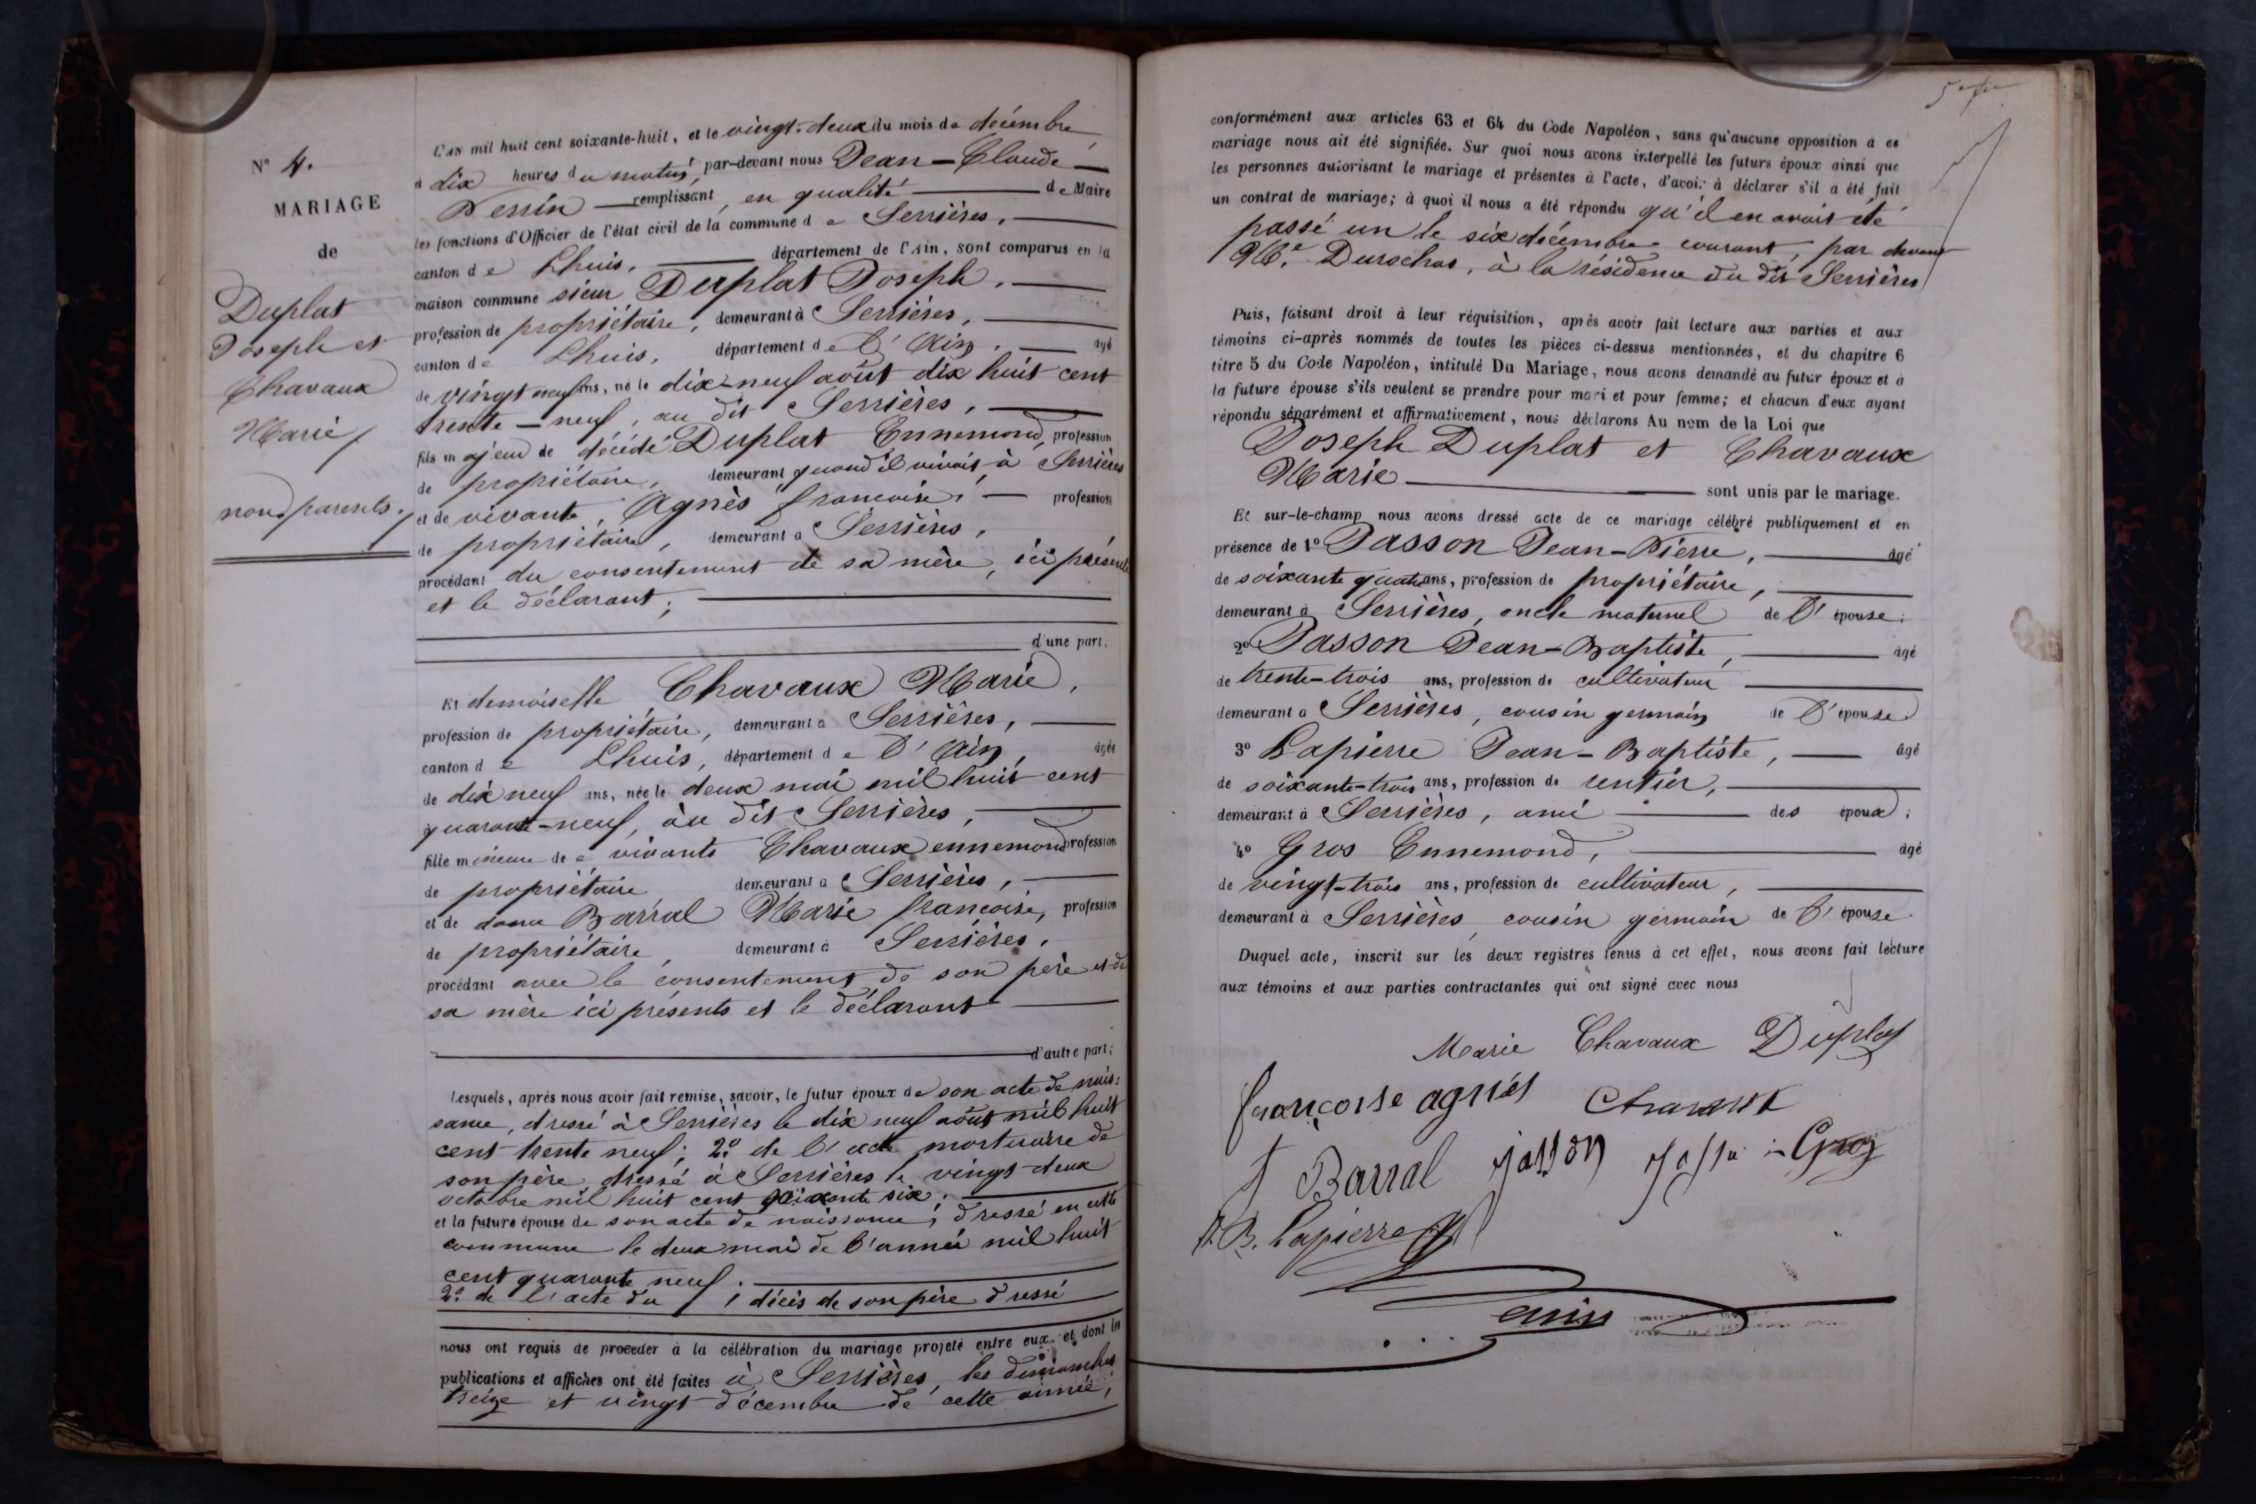 N° 4.
MARIAGE
de
Duplat
Joseph et
Chavaux
Marie
non parents.
L'AN mil huit cent soixante-huit, et le vingt-deux du mois de décembre
à dix heures du matin, par-devant nous Jean-Claude
Perrin remplissant, en qualité de Maire
les fonctions d'Officier de l'état civil de la commune de Serrières,
canton de Lhuis, département de l'Ain, sont comparus en la
maison commune sieur Duplat Joseph,
profession de propriétaire, demeurant à Serrières,
canton de Lhuis, département de l'Ain, âgé
de vingt neuf ans, né le dix-neuf août dix huit cent
trente-neuf, au dit Serrières,
fils majeur de décédé Duplat Ennemond, profession
de propriétaire, demeurant quand il vivait, à Serrières
et de vivante Agnès françoise, profession
de propriétaire, demeurant à Serrières,
procédant du consentement de sa mère, ici présente
et le déclarant;
d'une part.
Et demoiselle Chavaux Marie,
profession de propriétaire, demeurant à Serrières,
canton de Lhuis, département de l'Ain, âgée
de dix neuf ans, née le deux mai mil huit cent
quarante-neuf, au dit Serrières,
fille mineure de vivants Chavaux ennemond profession
de propriétaire demeurant à Serrières,
et de dame Barral Marie françoise, profession
de propriétaire, demeurant à Serrières.
procédant avec le consentement de son père et de
sa mère ici présents et le déclarant
d'autre part;
Lesquels, après nous avoir fait remise, savoir, le futur époux de son acte de nais-
sance, dressé à Serrières le dix neuf août mil huit
cent trente neuf; 2° de l'acte mortuaire de
son père dressé à Serrières le vingt-deux
octobre mil huit cent soixante six;
et la future épouse de son acte de naissance; dressé en cette
commune le deux mai de l'année mil huit
cent quarante neuf.
2° de l'acte du décès de son père dressé
nous ont requis de procéder à la célébration du mariage projeté entre eux, et dont les
publications et affiches ont été faites à Serrières, les dimanches
treize et vingt décembre de cette année;
conformément aux articles 63 et 64 du Code Napoléon, sans qu'aucune opposition à ce
mariage nous ait été signifiée. Sur quoi nous avons interpellé les futurs époux ainsi que
les personnes autorisant le mariage et présentes à l'acte, d'avoir à déclarer s'il a été fait
un contrat de mariage; à quoi il nous a été répondu qu'il en avait été
passé un le six décembre courant, par devant
Me. Durochas, à la résidence du dit Serrières
Puis, faisant droit à leur réquisition, après avoir fait lecture aux parties et aux
témoins ci-après nommés de toutes les pièces ci-dessus mentionnées, et du chapitre 6
titre 5 du Code Napoléon, intitulé Du Mariage, nous avons demandé au futur époux et à
la future épouse s'ils veulent se prendre pour mari et pour femme; et chacun d'eux ayant
répondu séparément et affirmativement, nous déclarons Au nom de la Loi que
Joseph Duplat et Chavaux
Marie sont unis par le mariage.
Et sur-le-champ nous avons dressé acte de ce mariage célébré publiquement et en
présence de 1° Jasson Jean-Pierre, âgé
de soixante quatre ans, profession de propriétaire,
demeurant à Serrières, oncle maternel de l'épouse;
2° Jasson Jean-Baptiste, âgé
de trente-trois ans, profession de cultivateur
demeurant à Serrières, cousin germain de l'épouse
3° Lapierre Jean-Baptiste, âgé
de soixante-trois ans, profession de rentier,
demeurant à Serrières, ami des époux;
4° Gros Ennemond, âgé
de vingt-trois ans, profession de cultivateur,
demeurant à Serrières, cousin germain de l'épouse
Duquel acte, inscrit sur les deux registres tenus à cet effet, nous avons fait lecture
aux témoins et aux parties contractantes qui ont signé avec nous
Marie Chavaux Duplat
françoise agnès
Barral jasson Gros
J. B. Lapierre